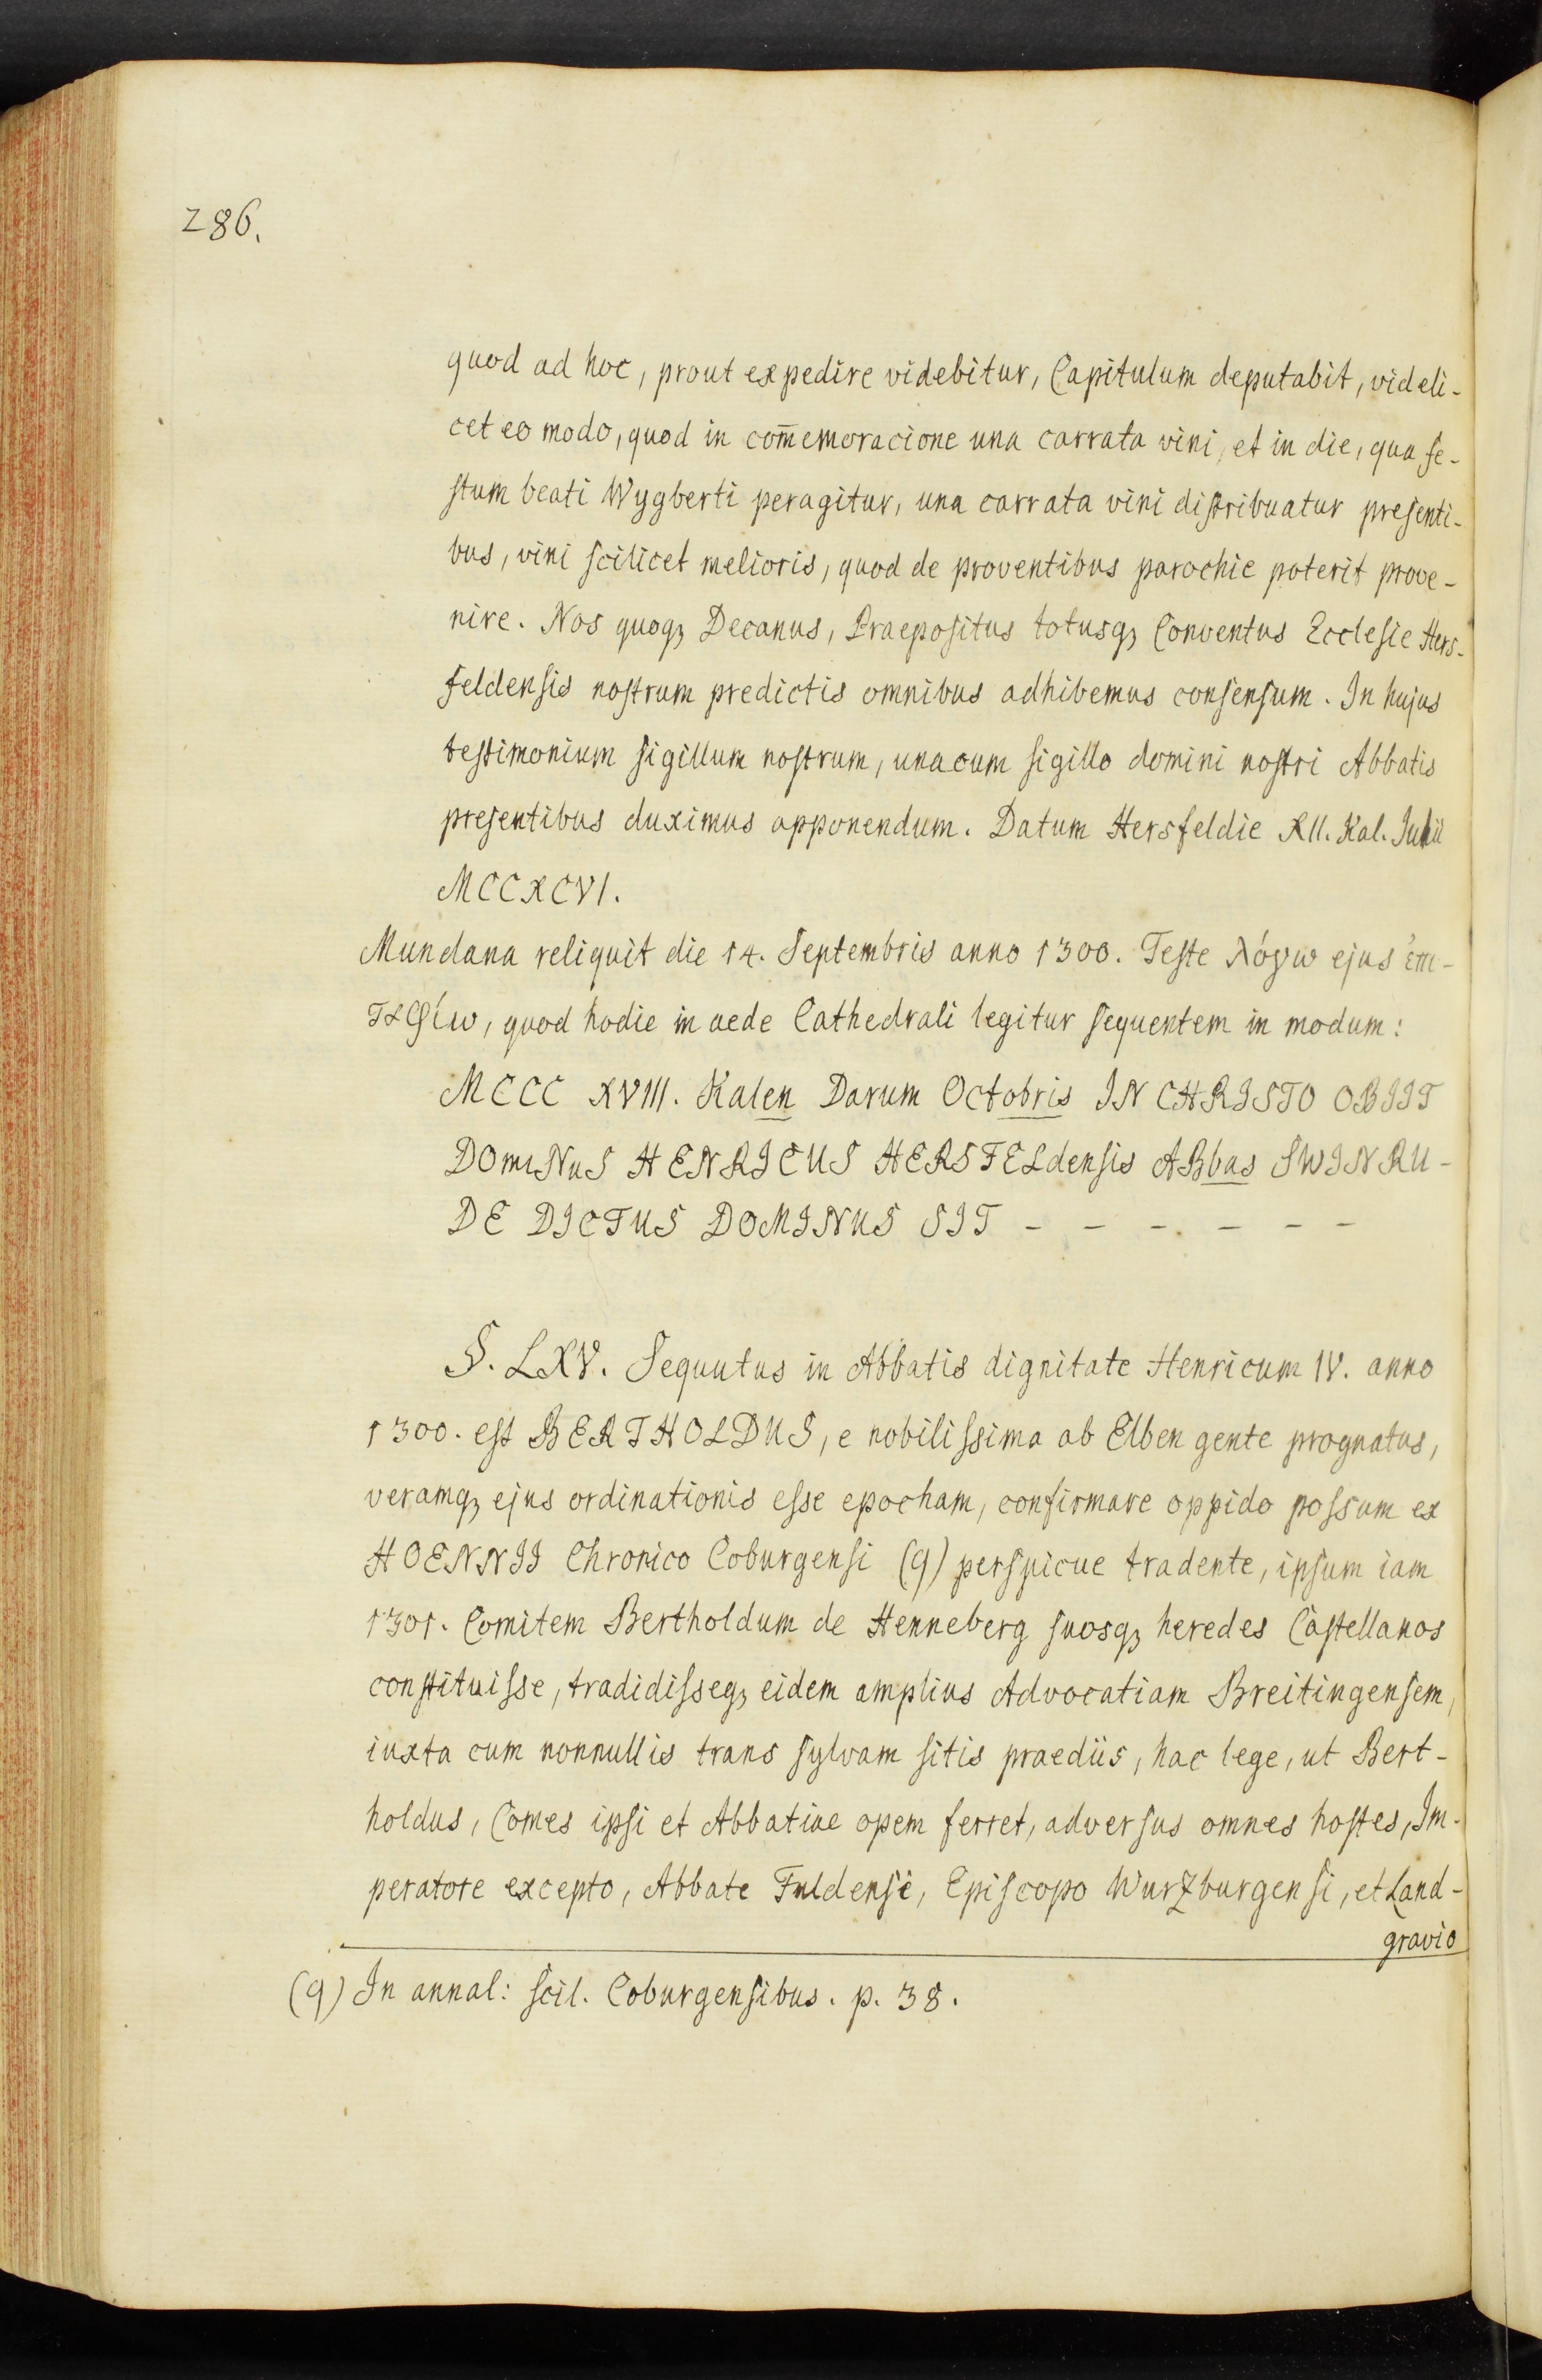 286.
quod ad hoc, prout expedire videbitur, Capitulum deputabit, videli-
cet eo modo, quod in com̄emoracione una carrata vini, et in die, qua fe-
stum beati Wygberti peragitur, una carrata vini distribuatur presenti-
bus, vini scilicet melioris, quod de proventibus parochie poterit prove-
nire. Nos quoqꝫ Decanus, Praepositus totusqꝫ Conventus Ecclesie Hers-
feldensis nostrum predictis omnibus adhibemus consensum. In hujus
testimonium sigillum nostrum, unacum sigillo domini nostri Abbatis
presentibus duximus apponendum. Datum Hersfeldie XII. Kal.
MCCXCVI.
Mundana reliquit die 14. Septembris anno 1300. Teste λόγω ejus ἐπι-
ταφίω, quod hodie in aede Cathedrali legitur sequentem in modum:
MCCC XVIII. Kalen Darum Octobris IN CHRISTO OBIIT
DOmiNuS HENRICUS HERSFELdensis ABbas SWINRU-
DE DICTUS DOMINUS SIT - - - - - -
§. LXV. Sequutus in Abbatis dignitate Henricum IV. anno
1300. est BERTHOLDUS, e nobilissima ab Elben gente prognatus,
veramqꝫ ejus ordinationis esse epocham, confirmare oppido possum ex
HOENNII Chronico Coburgensi (q) perspicue tradente, ipsum iam
1301. Comitem Bertholdum de Henneberg suosqꝫ heredes Castellanos
constituisse, tradidisseqꝫ eidem amplius Advocatiam Breitingensem,
iuxta cum nonnullis trans sylvam sitis praediis, hac lege, ut Bert-
holdus, Comes ipsi et Abbatiae opem ferret, adversus omnes hostes, Im-
peratore excepto, Abbate Fuldensi, Episcopo Wurzburgensi, et Land-
gravio
(q) In annal: scil. Coburgensibus. p. 38.